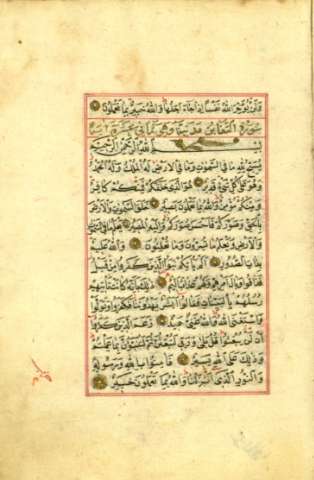 وَلَنْ يُؤَخِّرَ اللّٰهُ نَفْسًا اِذَا جَاۤءَ اَجَلُهَا وَاللّٰهُ خَبِيرٌ بِمَا تَعْمَلُونَ
سورة التغابن مدنية وهي ثماني عشرة آية
بِسْمِ اللّٰهِ الرَّحْمٰنِ الرَّحِيمِ
يُسَبِّحُ لِلّٰهِ مَا فِي السَّمٰوَاتِ وَمَا فِي الْاَرْضِ لَهُ الْمُلْكُ وَلَهُ الْحَمْدُ
وَهُوَ عَلٰى كُلِّ شَيْءٍ قَدِيرٌ هُوَ الَّذِي خَلَقَكُمْ فَمِنْكُمْ كَافِرٌ
وَمِنْكُمْ مُؤْمِنٌ وَاللّٰهُ بِمَا تَعْمَلُونَ بَصِيرٌ خَلَقَ السَّمٰوَاتِ وَالْاَرْضَ
بِالْحَقِّ وَصَوَّرَكُمْ فَاَحْسَنَ صُوَرَكُمْ وَاِلَيْهِ الْمَصِيرُ يَعْلَمُ مَا فِي السَّمٰوَاتِ
وَالْاَرْضِ وَيَعْلَمُ مَا تُسِرُّونَ وَمَا تُعْلِنُونَ وَاللّٰهُ عَلِيمٌ
بِذَاتِ الصُّدُورِ اَلَمْ يَأْتِكُمْ نَبَؤُا الَّذِينَ كَفَرُوا مِنْ قَبْلُ
فَذَاقُوا وَبَالَ اَمْرِهِمْ وَلَهُمْ عَذَابٌ اَلِيمٌ ذٰلِكَ بِاَنَّهُ كَانَتْ تَأْتِيهِمْ
رُسُلُهُمْ بِالْبَيِّنَاتِ فَقَالُوا اَبَشَرٌ يَهْدُونَنَا فَكَفَرُوا وَتَوَلَّوْا
وَاسْتَغْنَى اللّٰهُ وَاللّٰهُ غَنِيٌّ حَمِيدٌ زَعَمَ الَّذِينَ كَفَرُوا
اَنْ لَنْ يُبْعَثُوا قُلْ بَلٰى وَرَبِّي لَتُبْعَثُنَّ ثُمَّ لَتُنَبَّؤُنَّ بِمَا عَمِلْتُمْ
وَذٰلِكَ عَلَى اللّٰهِ يَسِيرٌ فَاٰمِنُوا بِاللّٰهِ وَرَسُولِهِ
وَالنُّورِ الَّذِي اَنْزَلْنَا وَاللّٰهُ بِمَا تَعْمَلُونَ خَبِيرٌ